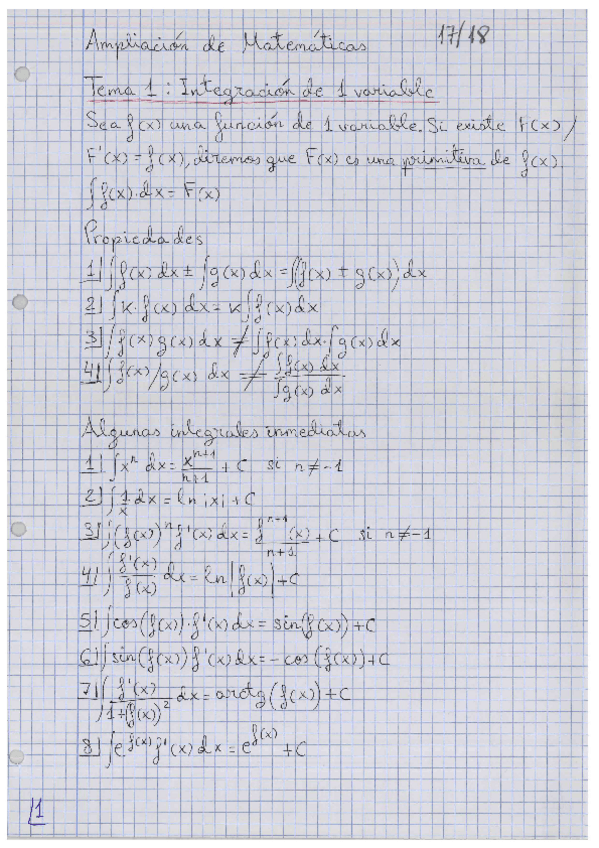 Ampliación de Matemáticas 17/18
Tema 1: Integración de 1 variable
Sea f(x) una función de 1 variable. Si existe F(x) /
F'(x) = f(x), diremos que F(x) es una primitiva de f(x).
∫f(x)·dx = F(x)
Propiedades
1) ∫f(x) dx ± ∫g(x) dx = ∫(f(x) ± g(x)) dx
2) ∫K·f(x) dx = K∫f(x) dx
3) ∫f(x) g(x) dx ≠ ∫f(x) dx·∫g(x) dx
4) ∫f(x)/g(x) dx ≠ ∫f(x) dx / ∫g(x) dx
Algunas integrales inmediatas
1) ∫x^n dx = x^(n+1)/(n+1) + C si n ≠ -1
2) ∫1/x dx = ln |x| + C
3) ∫(f(x))^n f'(x) dx = f^(n+1)(x)/(n+1) + C si n ≠ -1
4) ∫f'(x)/f(x) dx = ln |f(x)| + C
5) ∫cos(f(x))·f'(x) dx = sin(f(x)) + C
6) ∫sin(f(x)) f'(x) dx = -cos(f(x)) + C
7) ∫f'(x)/(1+(f(x))^2) dx = arctg(f(x)) + C
8) ∫e^f(x) f'(x) dx = e^f(x) + C
1